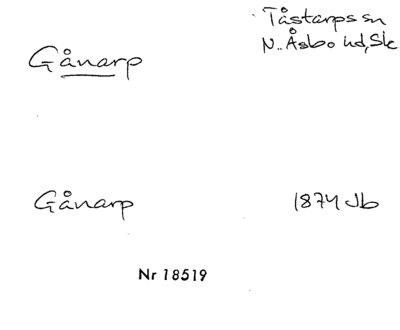 Gånarp
Tåstarps sn
N. Åsbo hd, Sk
Gånarp
1874 Jb
Nr 18519